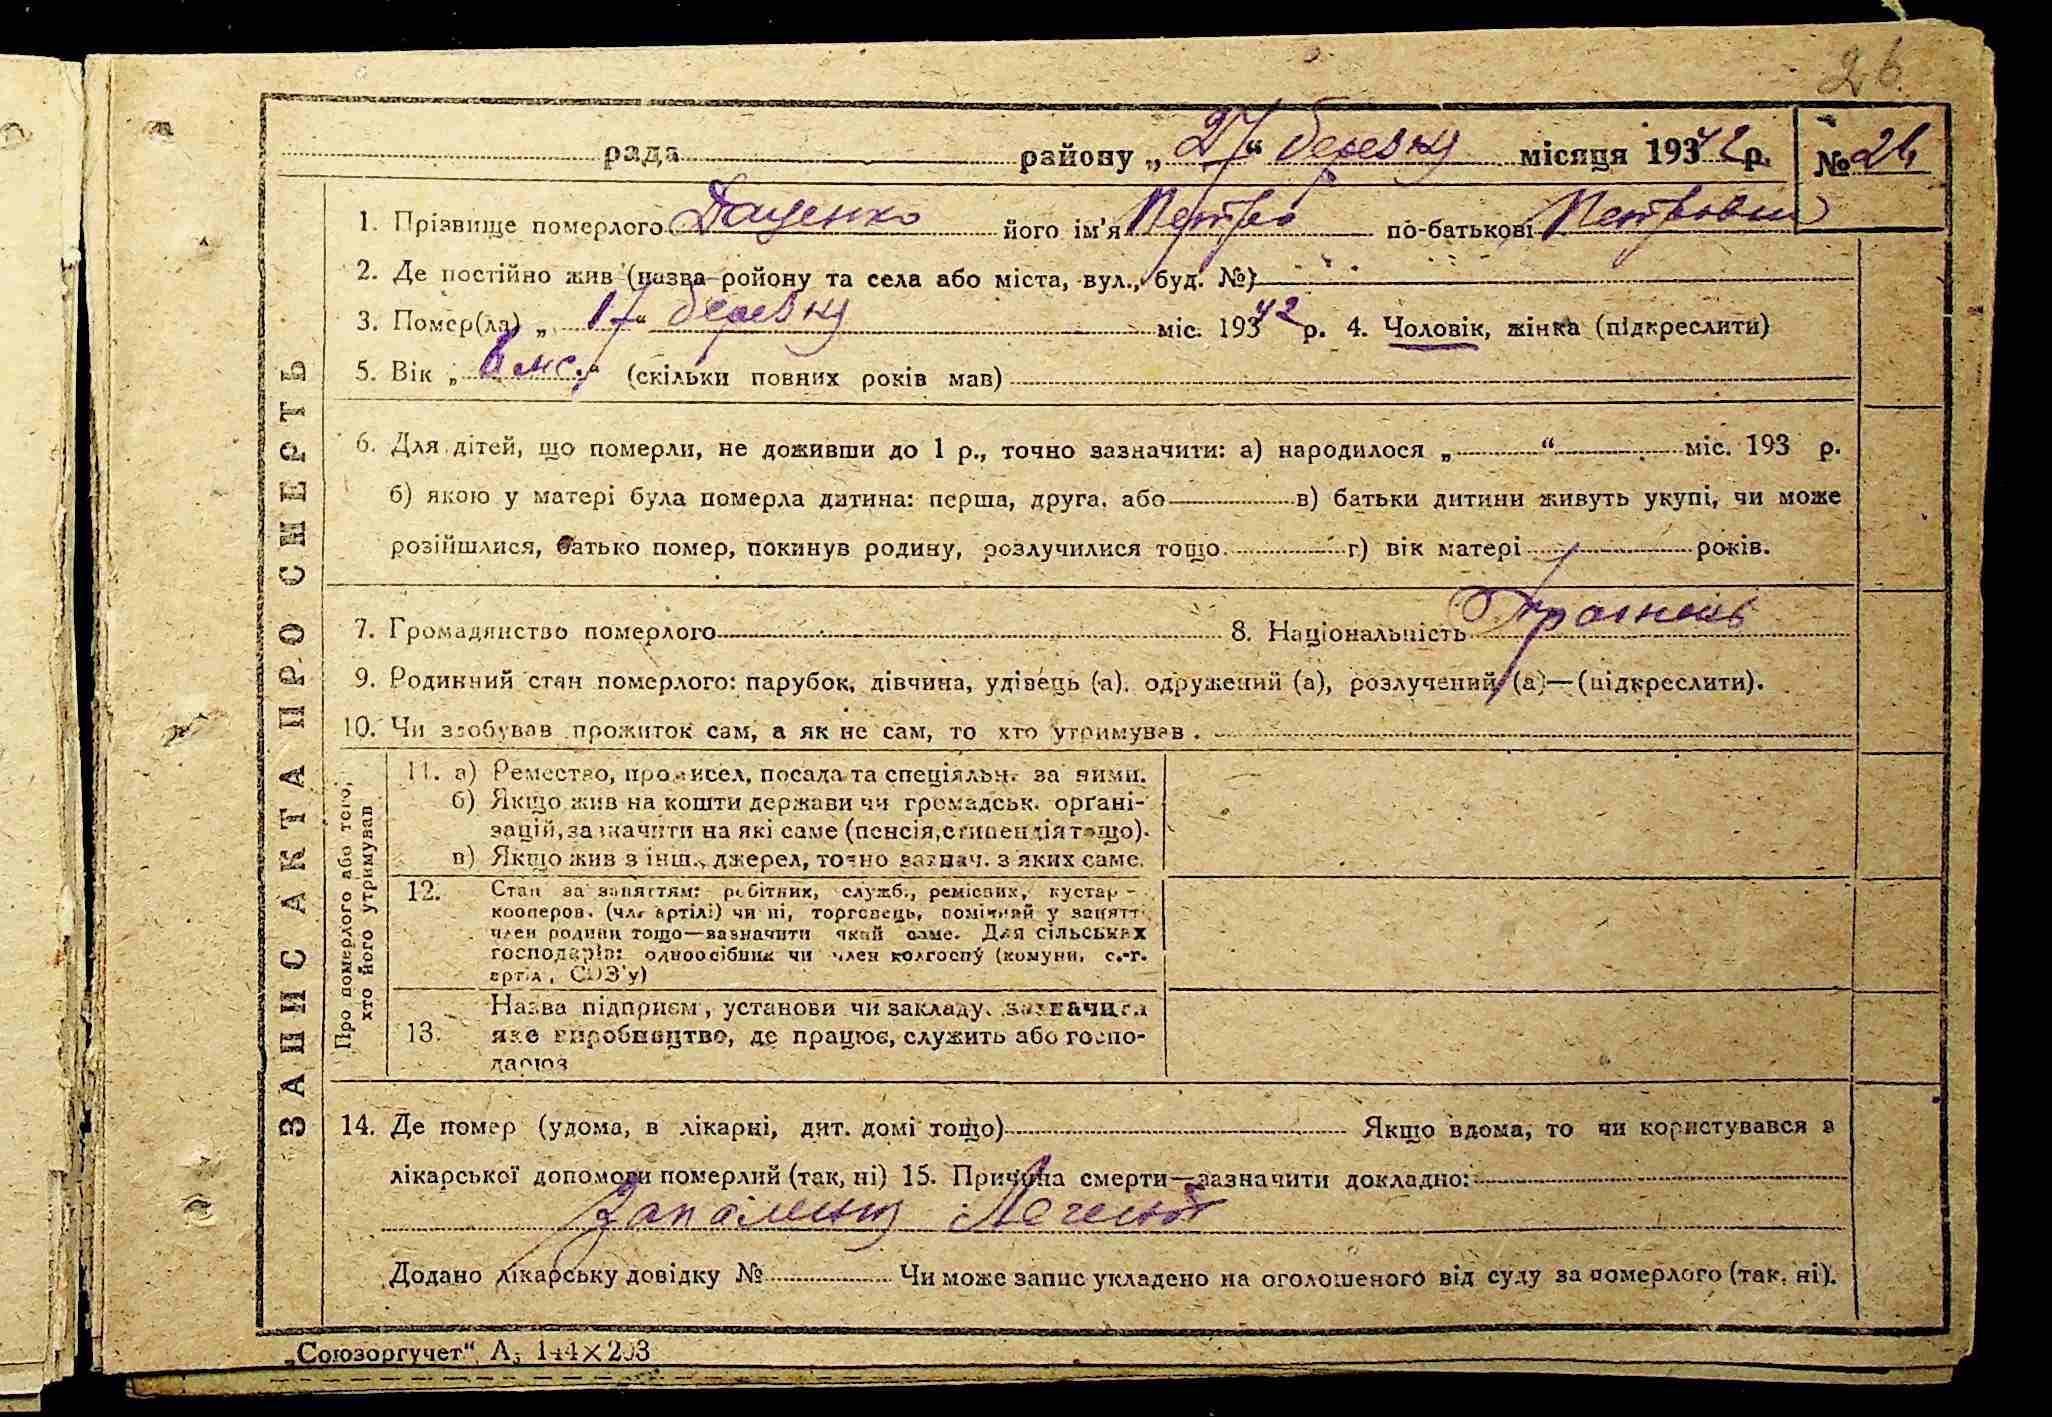 26.
рада районy „27“ березня місяця 1942 р. № 26
1. Прізвище померлого Даценко його ім'я Петро по-батькові Петрович
2. Де постійно жив (назва ройону та села або міста, вул., буд. №)
3. Помер(ла) „17“ березня міс. 1942 р. 4. Чоловік, жінка (підкреслити)
5. Вік „ міс.“ (скільки повних років мав)
6. Для дітей, що померли, не доживши до 1 р., точно зазначити: а) народилося „ “ міс. 193 р.
б) якою у матері була померла дитина: перша, друга, або в) батьки дитини живуть укупі, чи може
розійшлися, батько помер, покинув родину, розлучилися тощо г) вік матері років.
7. Громадянство померлого 8. Національність
9. Родинний стан померлого: парубок, дівчина, удівець (а), одружений (а), розлучений (а)—(підкреслити).
10. Чи здобував прожиток сам, а як не сам, то хто утримував .
ЗАПИС АКТА ПРО СМЕРТЬ
Про померлого або того, хто його утримував
11. а) Ремество, промисел, посада та спеціяльн. за ними.
б) Якщо жив на кошти держави чи громадськ. орґані-
зацій, зазначити на які саме (пенсія, стипендія тощо).
в) Якщо жив з інш. джерел, точно зазнач. з яких саме.
12. Стан за заняттям: робітник, служб., ремісник, кустар -
кооперов. (чл. артілі) чи ні, торговець, помічний у занятт.
член родини тощо—зазначити який саме. Для сільських
господарів: одноосібник чи член колгоспу (комуни, с.-г.
артіл, СОЗ'у)
13. Назва підприєм, установи чи закладу. зазначити
яке виробництво, де працює, служить або госпо-
дарює
14. Де помер (удома, в лікарні, дит. домі тощо) Якщо вдома, то чи користувався з
лікарської допомоги померлий (так, ні) 15. Причина смерти—зазначити докладно:
Запаленя Легенів
Додано лікарську довідку № Чи може запис укладено на оголошеного від суду за померлого (так, ні).
„Союзоргучет“ А5 144×203